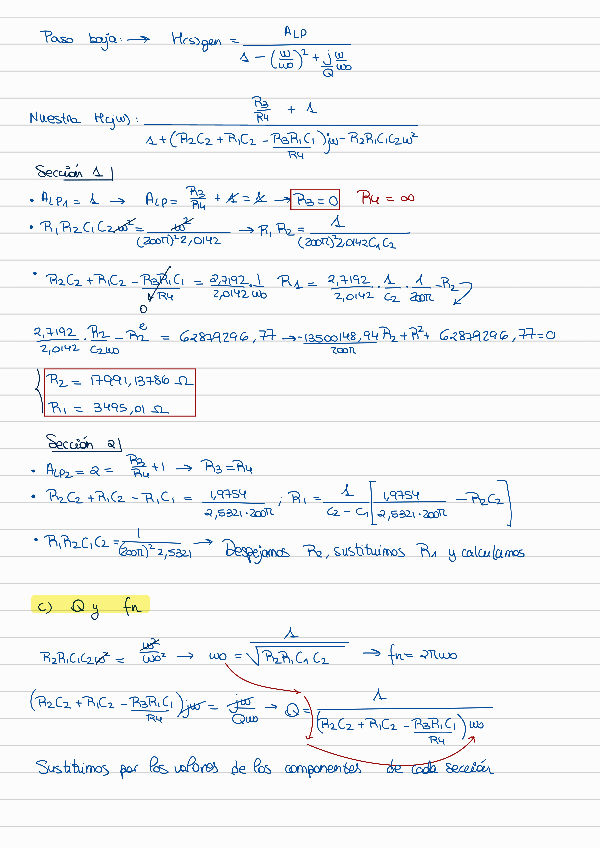 Paso baja: → H(s)gen = ALP / (1 - (w/wo)² + j/Q w/wo)
Nuestra H(jw): (R3/R4 + 1) / (1 + (R2C2 + R1C2 - R3R1C1/R4)jw - R2R1C1C2w²)
Sección 1|
• ALP1 = 1 → ALP = R3/R4 + 1 = 1 → R3 = 0 R4 = ∞
• R1R2C1C2w² = w²/((200π)²2,0142) → R1R2 = 1/((200π)²2,0142C1C2)
• R2C2 + R1C2 - R3R1C1/R4 = 2,7192/2,0142 · 1/wo R1 = 2,7192/2,0142 · 1/C2 · 1/200π - R2
0
2,7192/2,0142 · R2/C2wo - R2² = 62879296,77 → -13500148,94/200π R2 + R² + 62879296,77 = 0
R2 = 17991,13786 Ω
R1 = 3495,01 Ω
Sección 2|
• ALP2 = 2 = R3/R4 + 1 → R3 = R4
• R2C2 + R1C2 - R1C1 = 1,9754/(2,5321·200π) ; R1 = 1/(C2 - C1) [1,9754/(2,5321·200π) - R2C2]
• R1R2C1C2 = 1/((200π)²2,5321) → Despejamos R2, sustituimos R1 y calculamos
c) Q y fn
R2R1C1C2w² = w²/wo² → wo = 1/√(R2R1C1C2) → fn = 2πwo
(R2C2 + R1C2 - R3R1C1/R4)jw = jw/Qwo → Q = 1/((R2C2 + R1C2 - R3R1C1/R4)wo)
Sustituimos por los valores de los componentes de cada sección